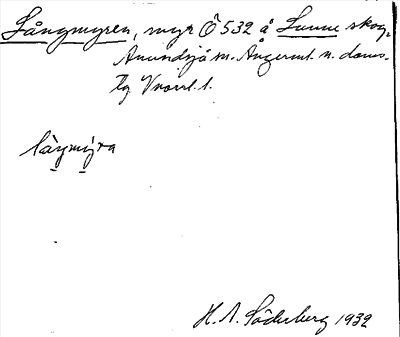 Långmyren, myr Ö 532 å Lunne skog,
Anundsjö m. Ångerml. n. doms.
lg Vnorrl. l.
låŋmy̠ra
H. A. Söderberg 1932